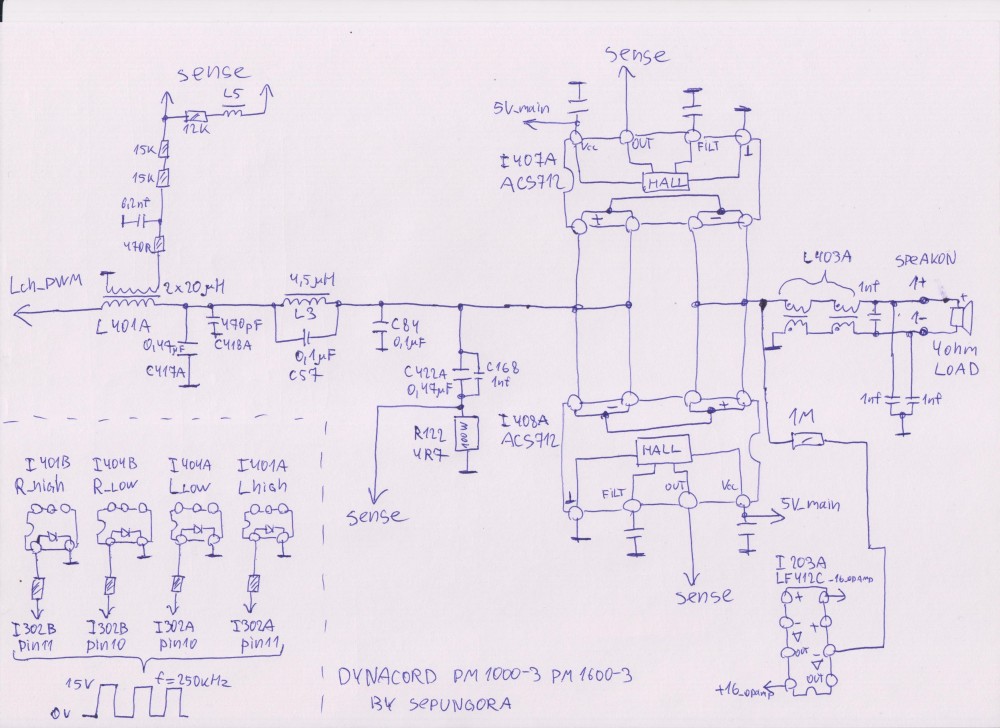 sense
L5
12K
15K
15K
0,2nf
470R
Lch_PWM
2x20µH
L401A
470pF
C418A
0,47µF
C417A
4,5µH
L3
0,1µF
C57
C84
0,1µF
C422A
0,47µF
C168
1nf
R122
4R7
100W
sense
sense
5V_main
Vcc
OUT
FILT
⊥
I407A
ACS712
HALL
+
-
L403A
SPEAKON
1nf
1+
1-
+
4ohm
LOAD
1nf
1nf
-
+
I408A
ACS712
HALL
⊥
FILT
OUT
Vcc
5V_main
sense
1M
I203A
LF412C
-16_opamp
+
-
+
OUT
-
OUT
+16_opamp
I401B
R_high
I404B
R_Low
I404A
L_Low
I401A
L high
I302B
pin11
I302B
pin10
I302A
pin10
I302A
pin11
15V
0V
f=250kHz
DYNACORD PM1000-3 PM1600-3
BY SEPUNGORA